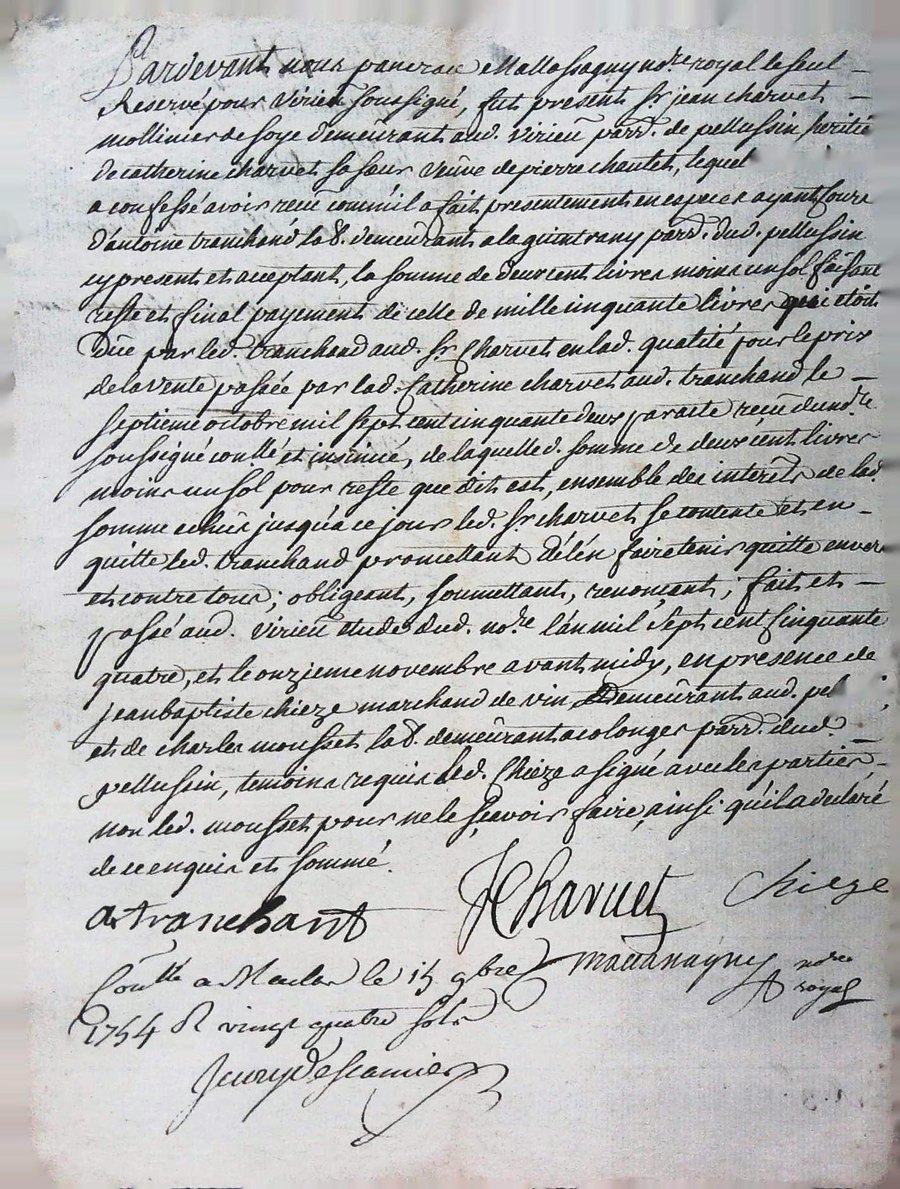 Pardevant nous pancrace Mattassagny no.re royal le seul
Reservé pour Virieu soussigné, fut present sr jean charvet
mollinier de soye demeurant aud. virieu parr. de pellussin heritie
de catherine charvet sa sœur veuve de pierre chautet, lequel
a confessé avoir reçu comm'il a fait presentement en especes ayant cours
d'antoine tranchand lab. demeurant a la guintrany parr. dud. pellussin
cy present et aceptant, la somme de deux cent livres moins un sol faisant
reste et final payement de celle de mille cinquante livres qui etoit
due par led. tranchand aud. sr Charvet en lad. qualité pour le prix
de la vente passée par lad. Catherine charvet aud. tranchand le
septieme octobre mil sept cent cinquante deux par acte reçu dud no.re
soussigné con.llé et insinué, de laquelle d. somme de deux cent livres
moins un sol pour reste que dit est, ensemble des interets de lad.
somme echus jusqu'a ce jour led. sr charvet se contente et en
quitte led. tranchand promettant d'el'en faire tenir quitte envers
et contre tous; obligeant, soumettant, renonçant, fait et
passé aud. virieu etude dud. no.re l'an mil sept cent cinquante
quatre, et le onzieme novembre avant midy, en presence de
jean baptiste chieze marchand de vin demeurant aud. pel
et de charles mousset lab. demeurant a colonges parr. dud.
pellussin, temoins requis led. Chieze a signé avec les parties,
non led. mousset pour ne le sçavoir faire, ainsi qu'il a declaré
de ce enquis et sommé.
a tranchant JCharvet Chieze
Con.llé a Maclas le 15 9bre no.re royal
1754 R vingt quatre sols